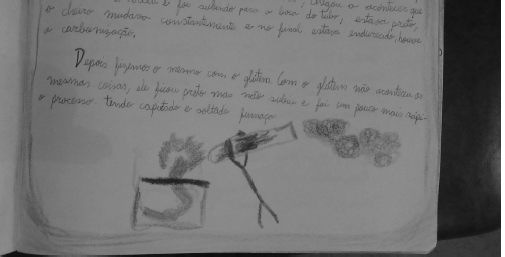 e foi subindo para a boca do tubo, estava preto,
o cheiro mudava constantemente e no final estava endurecido, houve
a carbonização.
Depois fizemos o mesmo com o glúten. Com o glúten não aconteceu as
mesmas coisas, ele ficou preto mas não subiu e foi um pouco mais rápi-
o processo tendo capitado e soltado fumaça